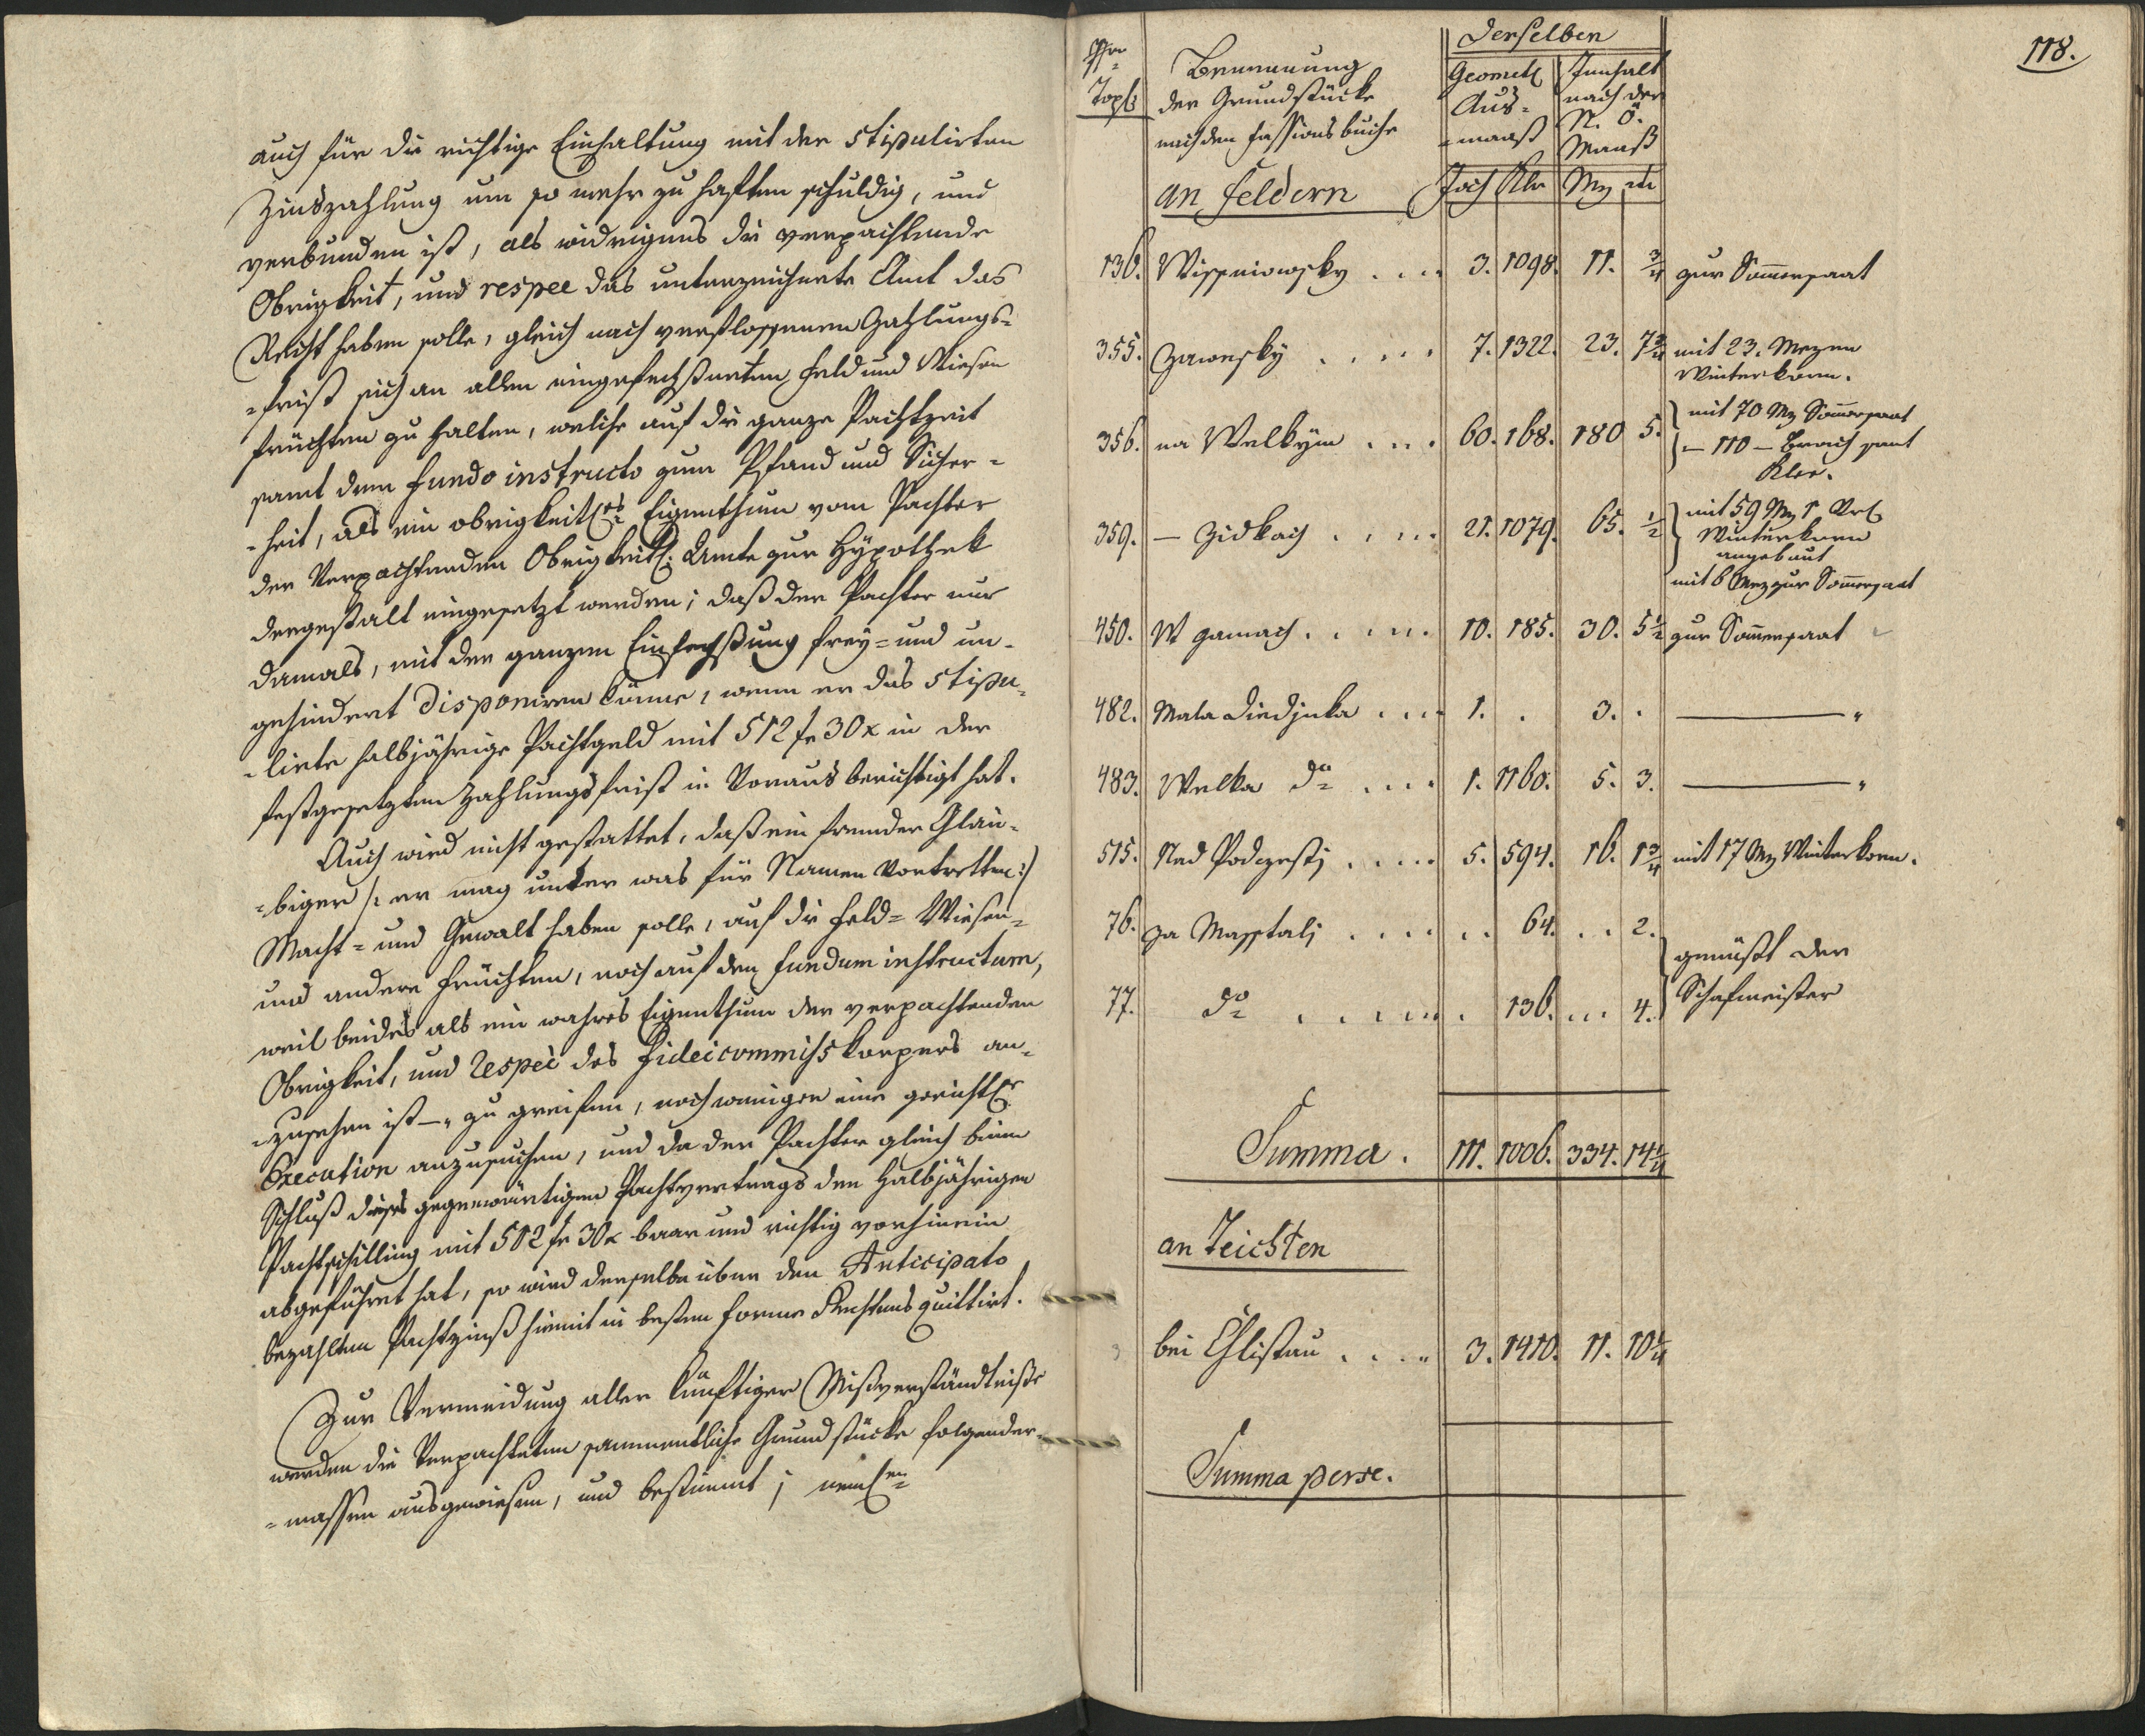 auch für die richtige Einhaltung mit der stipulirten
Zinszahlung um so mehr zu haften schuldig, und
verbunden ist, als widrigens die verpachtende
Obrigkeit, und respee das unterzeichnete Amt das
Recht haben solle, gleich nach verflossenen Zahlungs-
-frist sich an allen eingefechßneten Feld und Wiesen
früchten zu halten, welche auf die ganze Pachtzeit
samt dem fundo instructo zum Pfand und Sicher-
-heit, als ein obrigkeitl: Eigenthum vom Pachter
der Verpachtenden Obrigkeitl: Amte zur Hÿpothek
dergestalt eingesetzt werden; daß der Pachter nur
damals, mit der ganzen Einfechßung freÿ- und un-
gehindert disponiren könne, wenn er das stipu-
-lirte halbjährige Pachtgeld mit 512 fr 30 x in der
festgesetzten Zahlungsfrist in Voraus berichtigt hat.
Auch wird nicht gestattet, daß ein fremder Gläu-
-biger /: er mag unter was für Namen vortretten :/
Macht- und Gewalt haben solle, auf die Feld- Wiesen-
und andere Früchten, noch auf den fundum instructum,
weil beides als ein wahres Eigenthum der verpachtenden
Obrigkeit, und respèe des Fideicommiss korpers an-
-zusehen ist –, zu greifen, noch weniger eine gerichtl:
Execution anzusuchen, und da der Pachter gleich beim
Schluß dieses gegenwärtigen Pachtvertrags den halbjährigen
Pachtschilling mit 512 fr 30 x baar und richtig vorhinein
abgeführet hat, so wird derselbe über den Anticipato
bezahlten Pachtzinß hiemit in besten Forme Rechtens quittirt.
Zur Vermeidung aller künftigen Mißverständniße
werden die Verpachteten sammentliche Grundstücke folgender-
-massen ausgewiesen, und bestimmt; neml:
118.
Nro Topf:
Benennung der Grundstücke nach den Fassionsbuche
derselben
Geometl: Aus- -maaß
Innhalt nach der N. Ö. Maaß
an Feldern Joch Klr Mz
136. Wissniowsky .... 3. 1098. 11. 3/4 zur Somersaat
355. Zawesky ..... 7. 1322. 23. 7 3/4 mit 23. Mezen
Winterkorn.
356. na Welkým .... 60. 168. 180 5. mit 70 Mz Somersaat
– 110 – Brach samt
Klee.
359. – Zidkach ..... 21. 1079. 65. 1/2 mit 59 Mz 1
Winterkorn
angebaut
mit 6 Mez zur Somersaat
450. W Jamach ..... 10. 185. 30. 5 1/2 zur Somersaat
482. Mala Diedjnka .... 1. . 3. . — "
483. Welka do .... 1. 1160. 5. 3. — "
515. Nad Podczestj ..... 5. 594. 16. 1 3/4 mit 17 Mz Winterkorn.
76. za Masstalj .... .. 64. .. 2. genüßt der
77. do ...... . 136. ... 4. Schafmeister
Summa. 111. 1006. 334. 14 1/4
an Teichten
bei Chlistau .... 3. 1410. 11. 10 1/4
Summa perse.